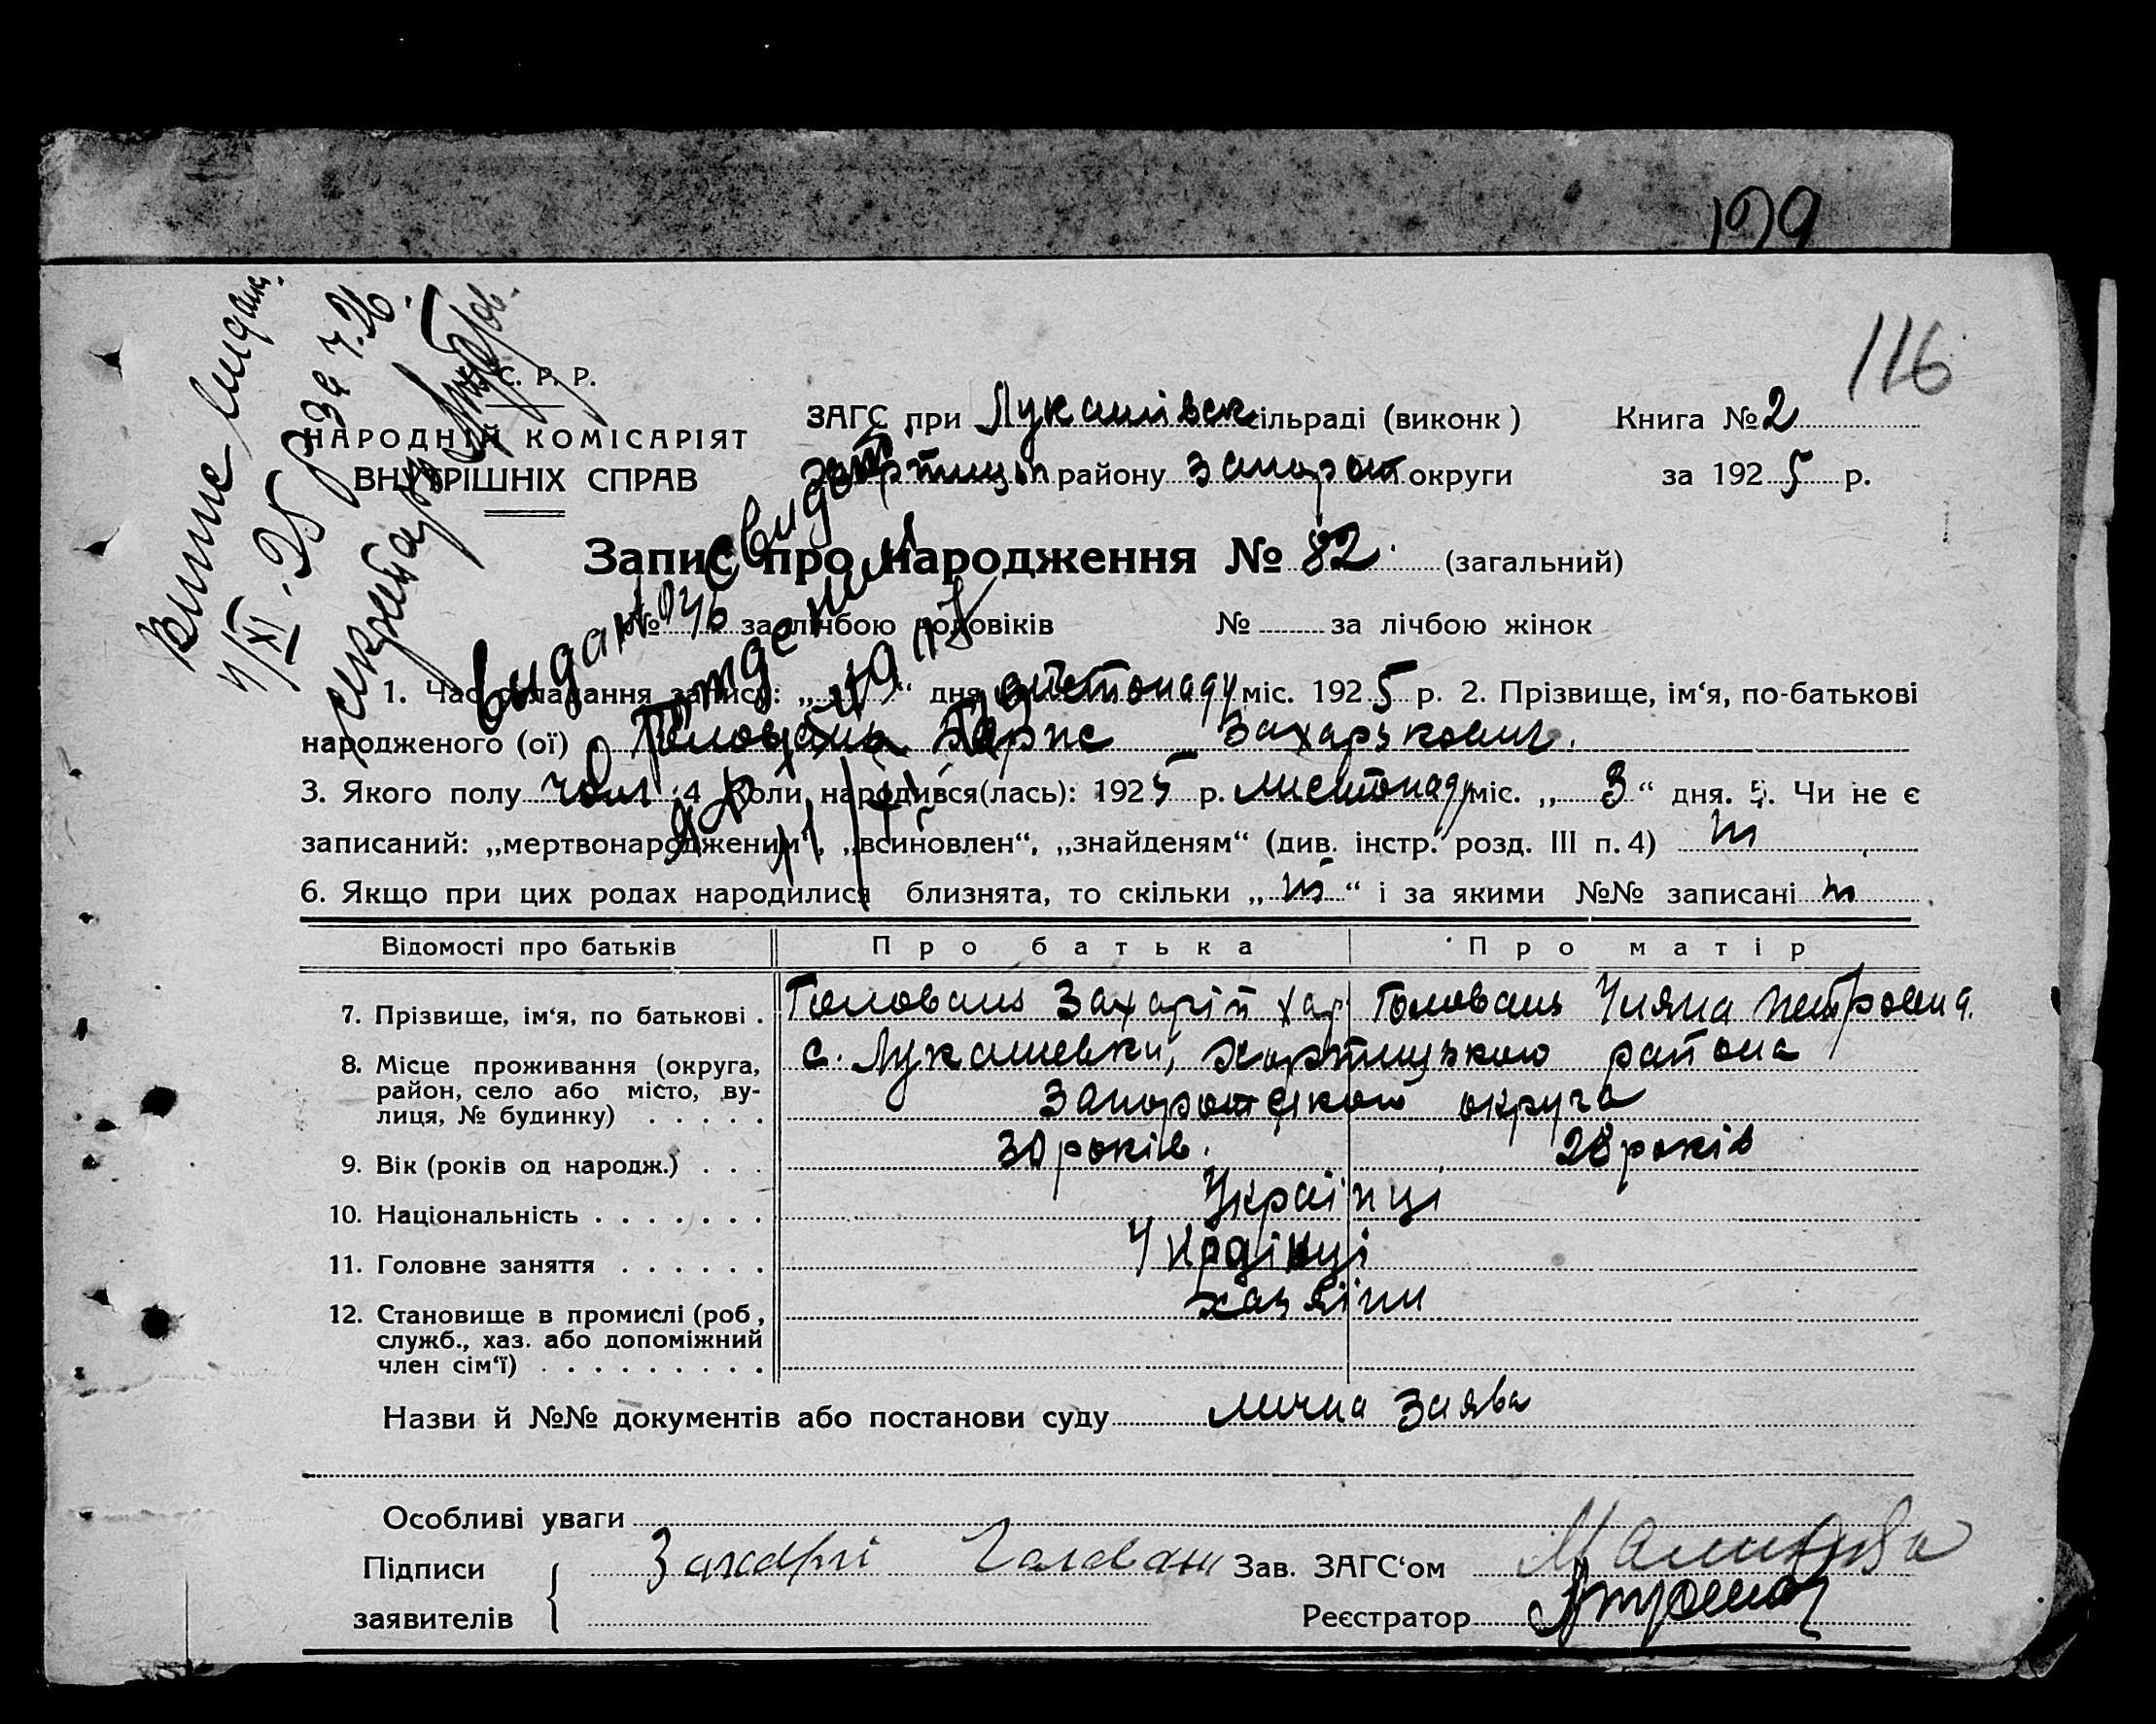 129
116
Випис видан.
4/XI. 25 р за ч. 26.
секретар
С. Р. Р.
НАРОДНІЙ КОМІСАРІЯТ
ВНУТРІШНІХ СПРАВ
ЗАГС при Лукашівск сільраді (виконк)
району Запорож округи
Книга № 2
за 1925 р.
Запис про народження № 82. (загальний)
№ 46 за лічбою чоловіків № за лічбою жінок
1. Час складання запису: „ “ дня листопаду міс. 1925 р. 2. Прізвище, ім‘я, по-батькові
народженого (ої) Головань Борис Захарькович.
3. Якого полу чол 4 Коли народився(лась): 1925 р. листопаду міс. „ 3 “ дня. 5. Чи не є
записаний: „мертвонародженим“, „всиновлен“, „знайденям“ (див. інстр. розд. III п. 4) т
6. Якщо при цих родах народилися близнята, то скільки „ т “ і за якими №№ записані т
Видан свидот
рождении
Відомості про батьків Про батька Про матір
7. Прізвище, ім‘я, по батькові . Головань Захарій Хар Головань Уляна Петровна.
8. Місце проживання (округа, район, село або місто, вулиця, № будинку) . . . . . с. Лукашевки, Хортицького района
Запорожского округа
9. Вік (років од народж.) . . . 30 років. 28 років
10. Національність . . . . . . . Українці
11. Головне заняття . . . . . . Українці
12. Становище в промислі (роб, служб., хаз. або допоміжний член сім‘ї) . . . . . . . . . хазяїни
Назви й №№ документів або постанови суду лична заява
Особливі уваги
Підписи
заявителів
Захарій Головань
Зав. ЗАГС‘ом
Реєстратор